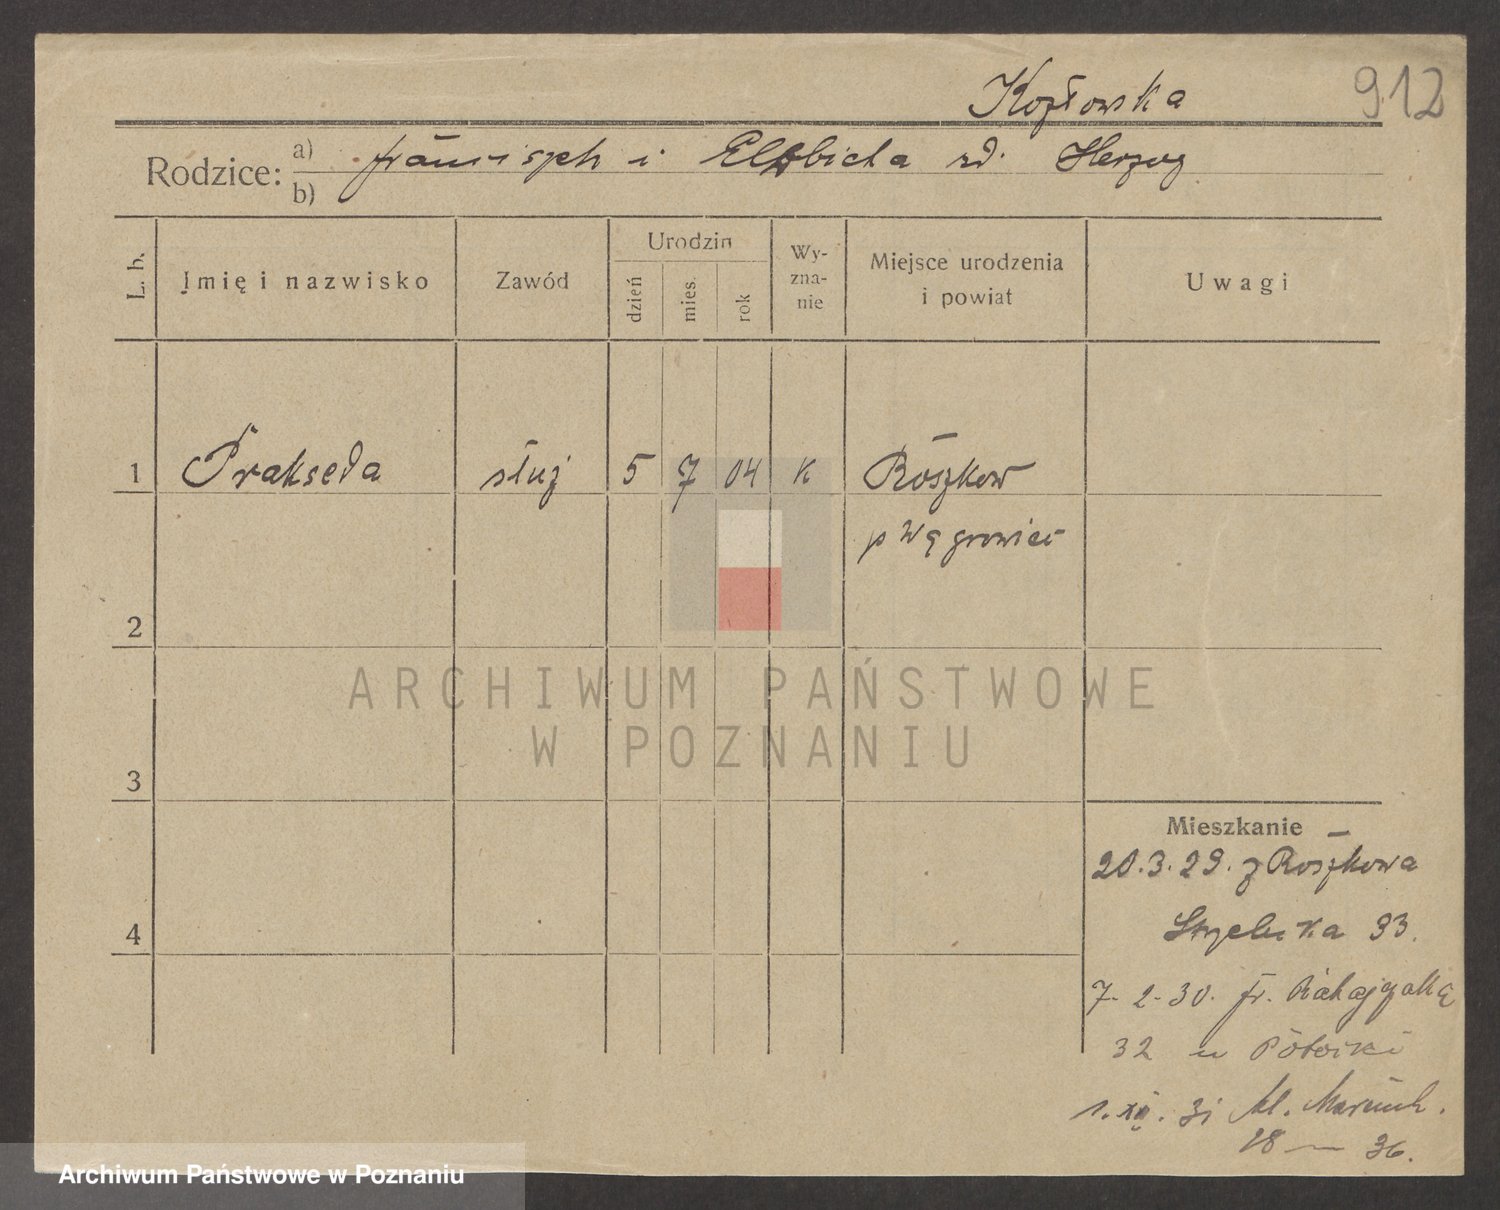 Kozłowska
912
Rodzice: a) franciszek i Elżbieta zd. Herzog
b)
L. b.
Imię i nazwisko
Zawód
Urodzin
dzień
mies.
rok
Wy-
zna-
nie
Miejsce urodzenia
i powiat
Uwagi
1 Prakseda służ 5 7 04 K Roszkow
p Wągrowiec
2
3
4
Mieszkanie
20.3.29. z Roszkowa
Strzelecka 33.
7-2-30. fr. Ratajczaka
32 u
1. XII. 31 Al. Marcink.
28 — 36.
ARCHIWUM PAŃSTWOWE
W POZNANIU
Archiwum Państwowe w Poznaniu